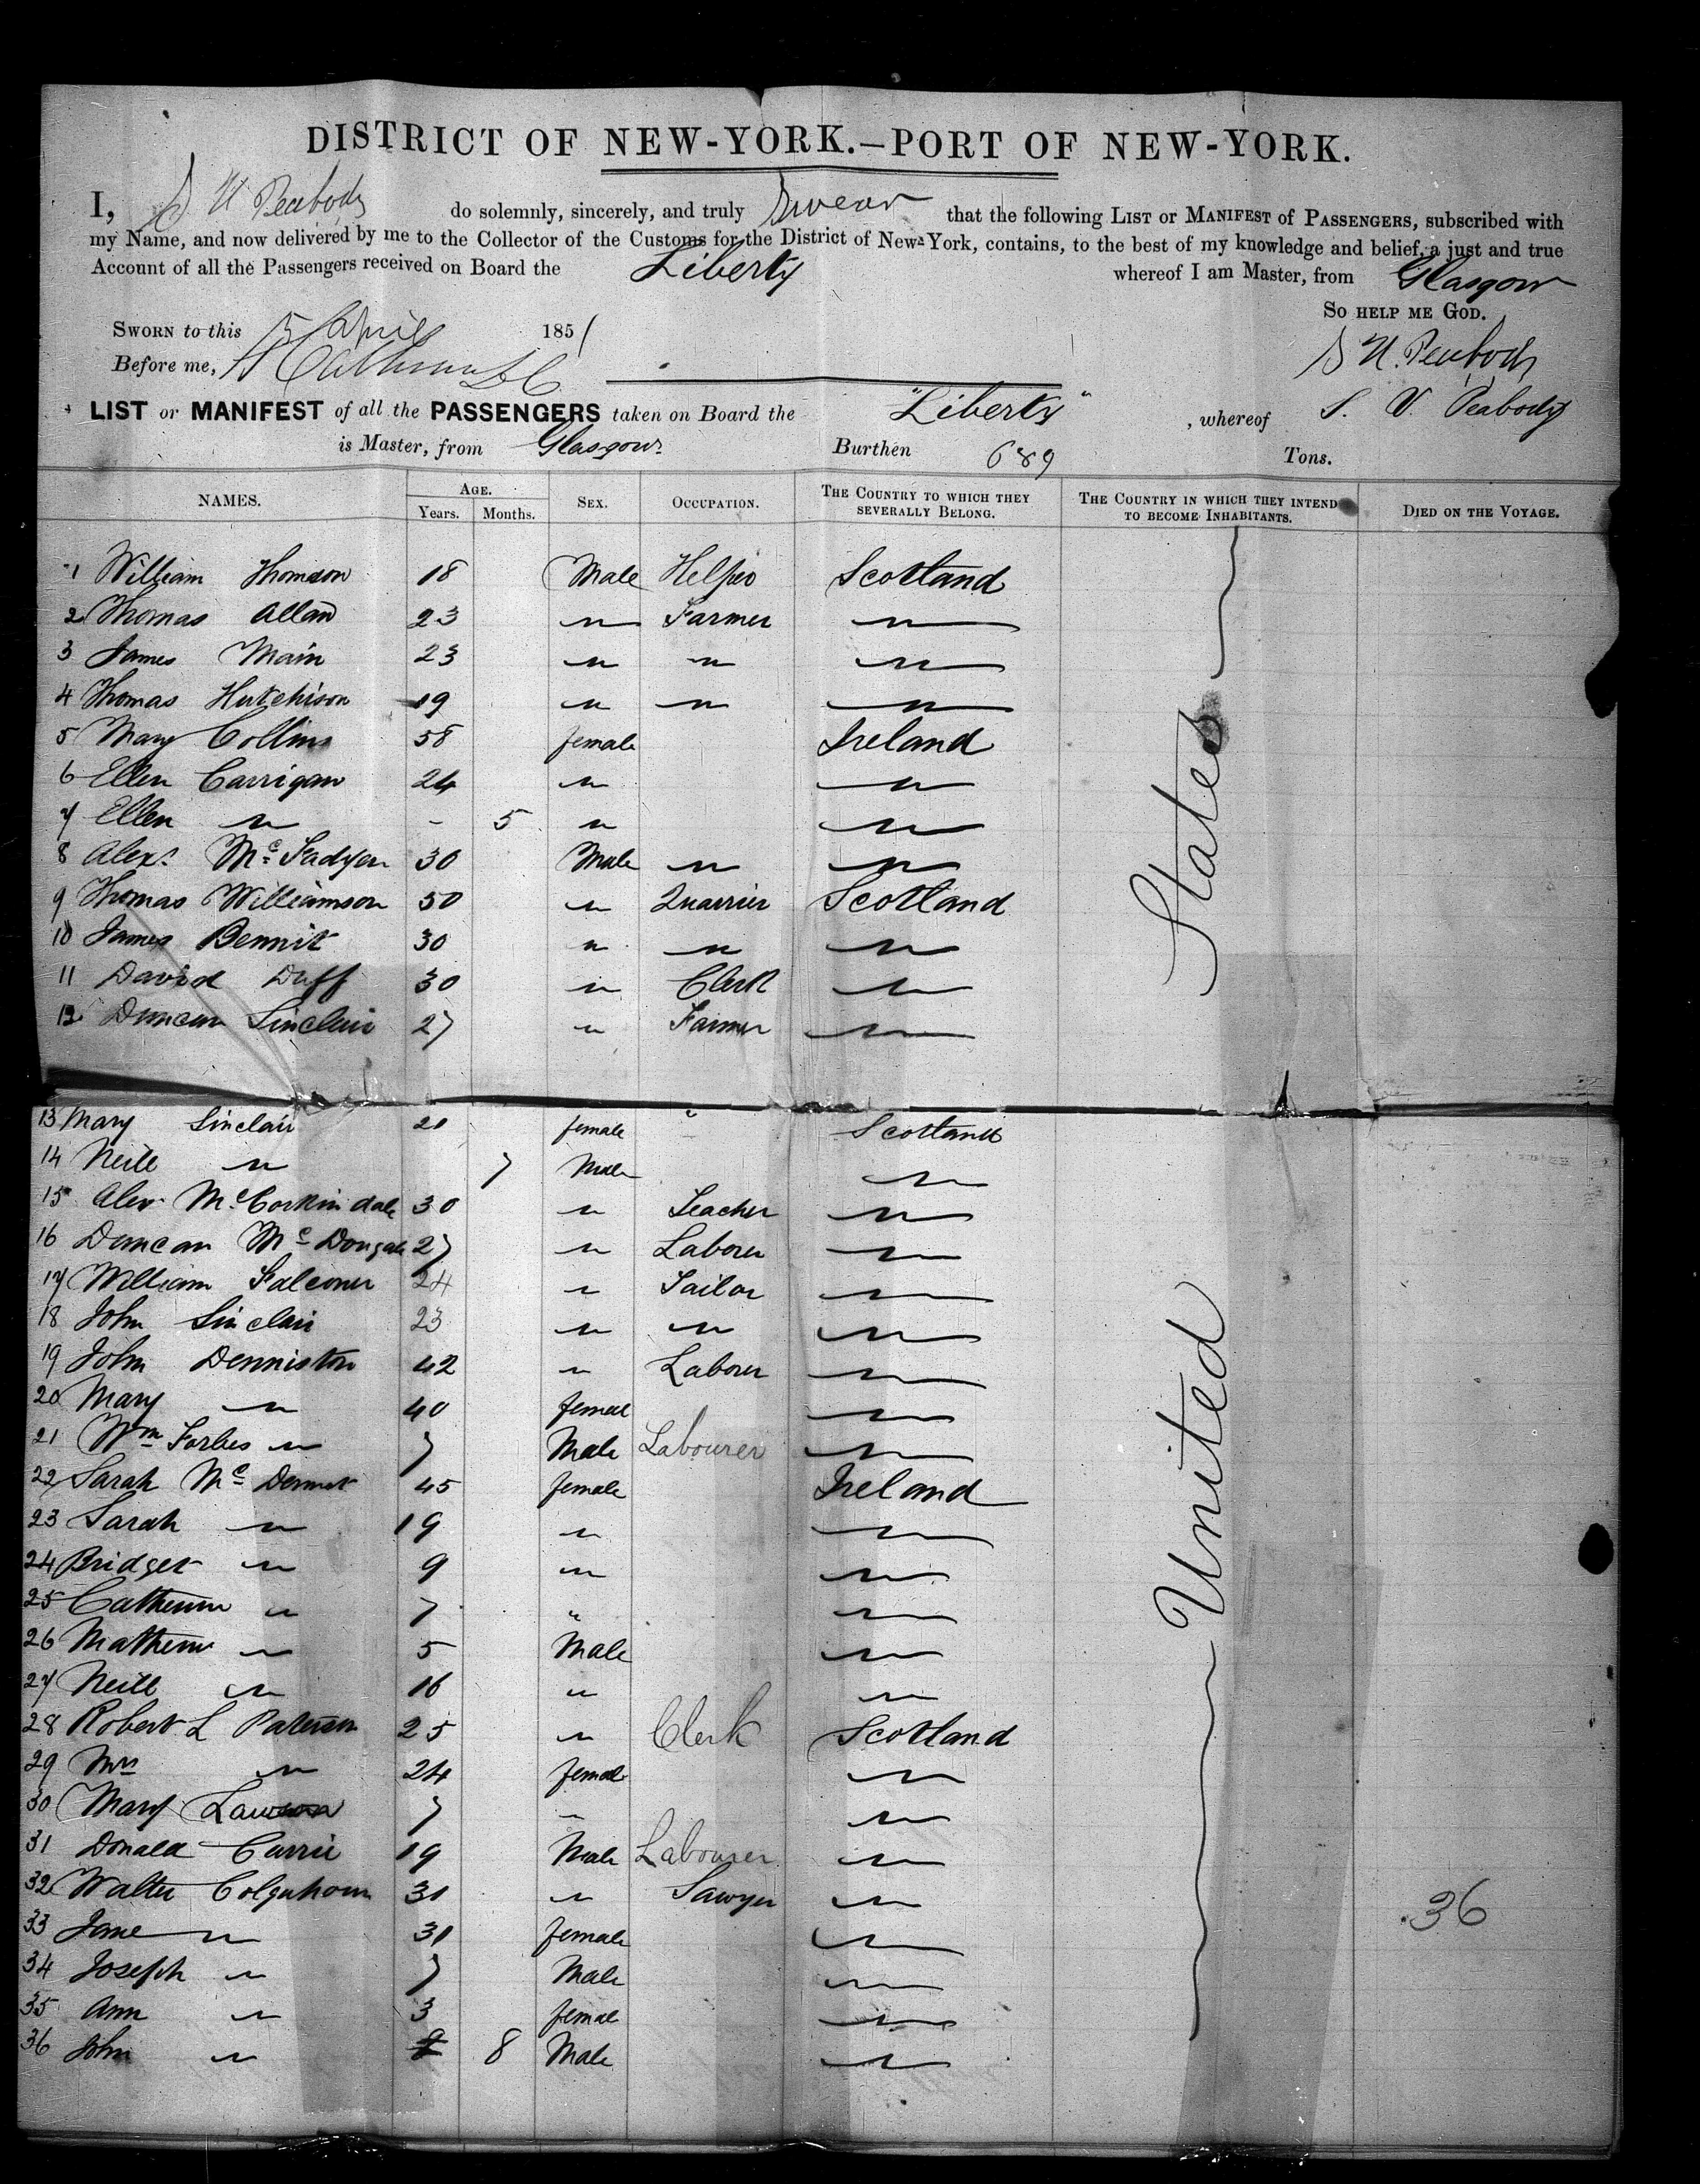 DISTRICT OF NEW-YORK.—PORT OF NEW-YORK.
I, S U Peabody do solemnly, sincerely, and truly Swear that the following LIST or MANIFEST of PASSENGERS, subscribed with
my Name, and now delivered by me to the Collector of the Customs for the District of New-York, contains, to the best of my knowledge and belief, a just and true
Account of all the Passengers received on Board the Liberty whereof I am Master, from Glasgow
SO HELP ME GOD.
SWORN to this 15 April 1851
Before me,
S U. Peabody
LIST or MANIFEST of all the PASSENGERS taken on Board the "Liberty" , whereof S. V. Peabody
is Master, from Glasgow Burthen 689 Tons.
NAMES. AGE. Years. Months. SEX. OCCUPATION. THE COUNTRY TO WHICH THEY SEVERALLY BELONG. THE COUNTRY IN WHICH THEY INTEND TO BECOME INHABITANTS. DIED ON THE VOYAGE.
1 William Thomson 18 Male Scotland
2 Thomas Allan 23 " Farmer "
3 James Main 23 " " "
4 Thomas Hutchison 19 " " "
5 Mary Collins 58 female Ireland
6 Ellen Carrigan 24 " "
7 Ellen " - 5 " "
8 Alexr McFadyen 30 Male " "
9 Thomas Williamson 50 " Quarrier Scotland
10 James Bennit 30 " " "
11 David Duff 30 " Clerk "
12 Duncan Sinclair 27 " Farmer "
13 Mary Sinclair 21 female " Scotland
14 Neill " 7 Male "
15 Alexr McCorkindale 30 " Teacher "
16 Duncan McDougall 27 " Laborer "
17 William Falconer 24 " Tailor "
18 John Sinclair 23 " " "
19 John Denniston 42 " Laborer "
20 Mary " 40 female "
21 Wm Forbes " 7 Male Labourer "
22 Sarah McDermot 45 female Ireland
23 Sarah " 19 " "
24 Bridget " 9 " "
25 Catherine " 7 " "
26 Mathew " 5 Male "
27 Neill " 16 " "
28 Robert L Paterson 25 " Clerk Scotland
29 Mrs " 24 female "
30 Mary Lawson 7 " "
31 Donald Currie 19 Male Labourer "
32 Walter Colquhoun 31 " Sawyer "
33 Jane " 31 female "
34 Joseph " 7 Male "
35 Ann " 3 female "
36 John " 8 Male "
United States
36